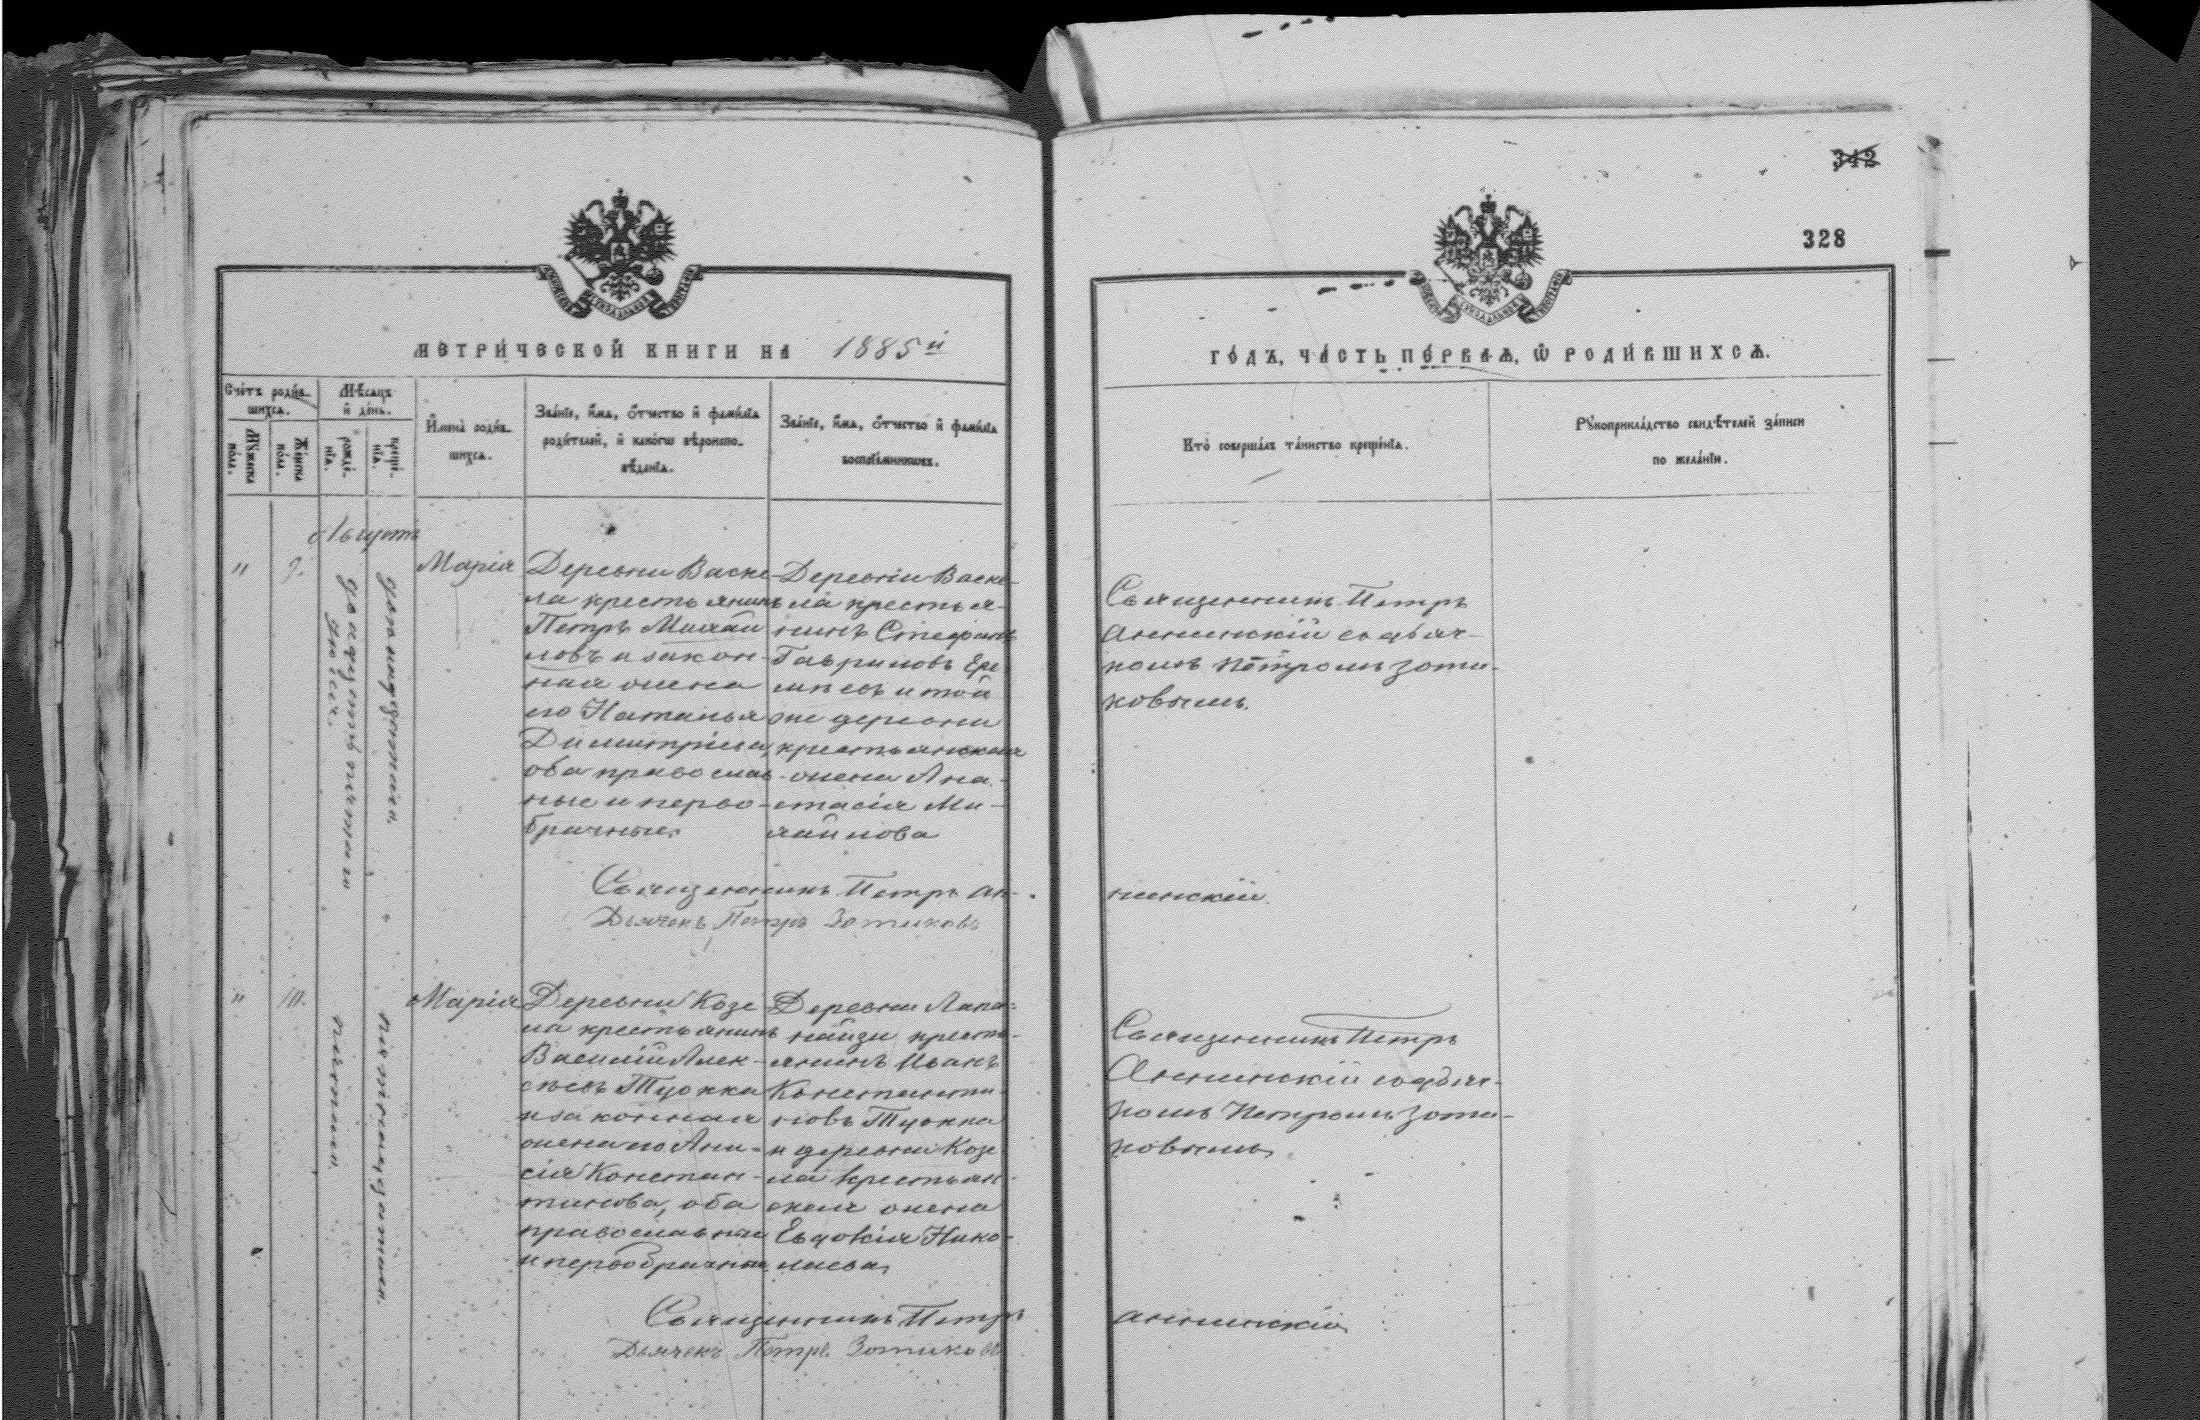 342
328
МЕТРИЧЕСКОЙ КНИГИ НА 1885й
ГОДЪ, ЧАСТЬ ПЕРВАЯ, Ѡ РОДИВШИХСЯ.
Счетъ родив-
шихся.
Мужеска пола.
Женска пола.
Мѣсяцъ
и день.
рожде-
нія.
креще-
нія.
Имена родив-
шихся.
Званіе, имя, отчество и фамилія
родителей, и какогѡ вѣроиспо-
вѣданія.
Званіе, имя, отчество и фамилія
воспріемниковъ.
Кто совершалъ таинство крещенія.
Рукоприкладство свидѣтелей записи
по желанію.
Августъ
" 9.
Марія
Деревни Васке-
ла крестьянинъ
Петръ Михаи
ловъ и закон-
ная жена
его Наталья
Димитріева,
оба православ-
ные и перво-
брачные.
Деревни Васке-
ла крестья-
нинъ Стефанъ
Гавриловъ Ере-
мѣевъ и той
же деревни
крестьянская
жена Ана-
стасія Ми-
хайлова
Священникъ Петръ
Аннинскій съ дьяч-
комъ Петромъ Зоти-
ковымъ.
Священникъ Петръ Ан-
нинскій.
Дьячекъ Петръ Зотиковъ
" 10.
Марія
Деревни Козе
ла крестьянинъ
Василій Алек-
сѣевъ Туокка
и законная
жена его Ани-
сія Констан-
тинова, оба
православные
и первобрачные
Деревни
крестъ-
янинъ Иванъ
Константи-
новъ Туокка
и деревни Козе
ла крестьян-
ская жена
Евдокія Нико-
лаева,
пятнадцатаго.
Священникъ Петръ
Аннинскій съ дьяч-
комъ Петромъ Зоти-
ковымъ,
Священникъ Петръ
Аннинскій
Дьячекъ Петръ Зотиковъ